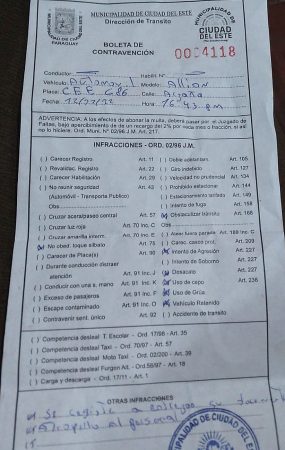 MUNICIPALIDAD DE CIUDAD DEL ESTE
Dirección de Transito
MUNICIPALIDAD DE
CIUDAD
DEL ESTE
PARAGUAY
BOLETA DE
CONTRAVENCIÓN
0004118
Conductor: Habilit. N°
Vehículo: Automovil Modelo: Allion
Placa: CEE 686 Calle:
Fecha: 12/12/22 Hora: 16:43 pm
ADVERTENCIA: A los efectos de abonar la multa, deberá pasar por el Juzgado de
Faltas, bajo apercibimiento de de un recargo del 2% por cada mes o fracción, si así
no lo hiciere. Ord. Muni. N° 02/96 J.M. Art. 217.
INFRACCIONES - ORD. 02/96 J.M.
( ) Carecer Registro Art. 11 ( ) Doble adelantam. Art. 105
( ) Revalidac. Registro Art. 22 ( ) Giro indebido Art. 127
( ) Carecer Habilitación Art. 29 ( ) Velocidad no prudencial Art. 134
( ) No reunir seguridad Art. 43 ( ) Prohibido estacionar Art. 144
(Automóvil - Transporte Publico) ( ) Estacionamiento antirreg. Art. 149
Obs ( ) Intento de fuga Art. 158
( ) Cruzar acera/paseo central Art. 57 Obstaculizar tránsito Art. 168
( ) Cruzar luz roja Art. 70 Inc. C Obs
( ) Cruzar amarilla interm. Art. 70 Inc. E ( ) Aseo fuera parada Art. 189 Inc. C
No obed. toque silbato Art. 75 ( ) Carac. casco prot. Art. 209
( ) Carecer de Placa(s) Art. 90 Intento de Agresión Art. 227
( ) Durante conducción distraer ( ) Intento de Soborno Art. 227
atención Art. 91 Inc. J Desacato Art. 227
( ) Conducir con una s. mano Art. 91 Inc. K Uso de cepo Art. 236
( ) Exceso de pasajeros Art. 91 Inc. F Uso de Grúa
( ) Escape contaminado Art. 91 Inc. O Vehículo Retenido
( ) Contravenir sent. único Art. 92 ( ) Accidente de transito
( ) Competencia desleal T. Escolar - Ord. 17/98 - Art. 35
( ) Competencia desleal Taxi - Ord. 70/97 - Art. 57
( ) Competencia desleal Moto Taxi - Ord. 02/200 - Art. 39
( ) Competencia desleal Furgon Alt. - Ord.58/97 - Art. 18
( ) Carga y descarga - Ord. 17/11 - Art. 1
OTRAS INFRACCIONES
Se a su
Atropello al personal
MUNICIPALIDAD DE CIUDAD DEL ESTE